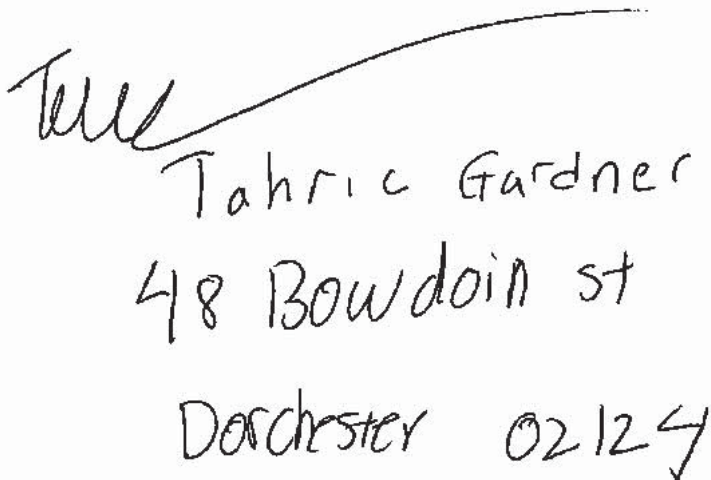 Tahric Gardner
48 Bowdoin st
Dorchester 02124